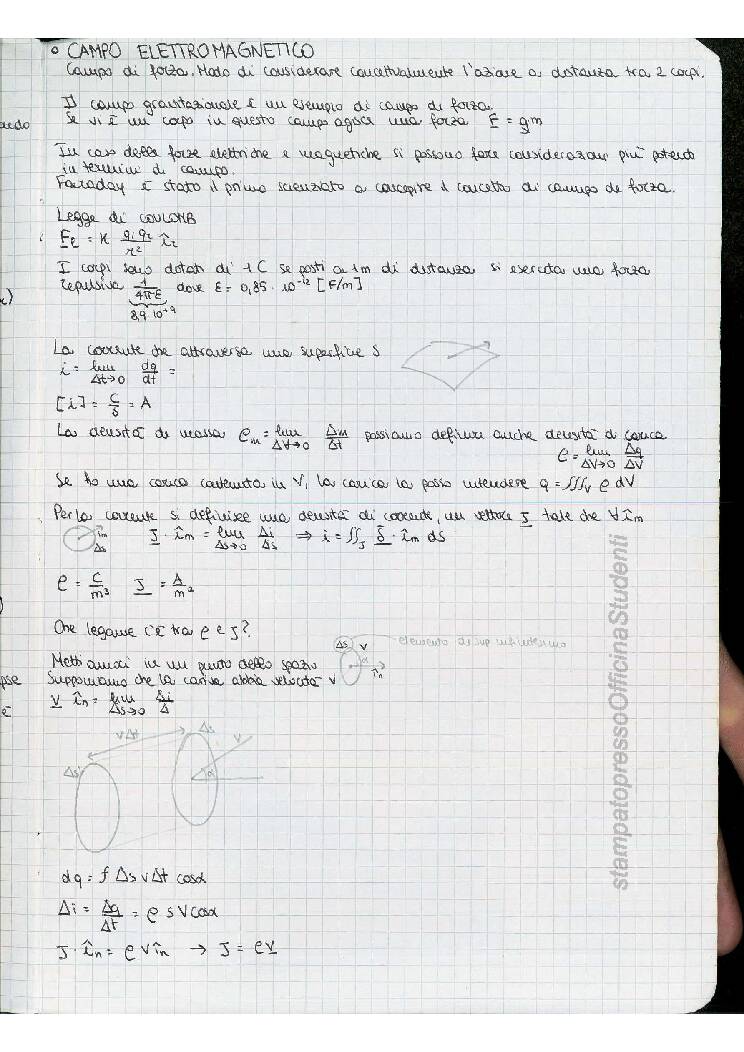 • CAMPO ELETTROMAGNETICO
Campo di forza. Modo di considerare concettualmente l'azione a distanza tra 2 corpi.
Il campo gravitazionale è un esempio di campo di forza.
Se vi è un corpo in questo campo agisce una forza F = gm
In caso delle forze elettriche e magnetiche si possono fare considerazioni più potendo
in termini di campo.
Faraday è stato il primo scienziato a concepire il concetto di campo di forza.
Legge di COULOMB
FE = K q1 q2 / r² îr
I corpi sono dotati di 1 C se posti a 1m di distanza si esercita una forza
repulsiva 1/4πε dove ε = 0,85 · 10⁻¹² [F/m]
8,9 10⁻⁹
La corrente che attraversa una superficie S
i = lim Δt→0 dq/dt =
[i] = C/s = A
La densità di massa ρm = lim ΔV→0 Δm/Δt possiamo definire anche densità di carica
ρ = lim ΔV→0 Δq/ΔV
Se ho una carica contenuta in V, la carica la posso intendere q = ∭V ρ dV
Per la corrente si definisce una densità di corrente, un vettore J tale che ∀ în
în
Δs
J · în = lim Δs→0 Δi/Δs ⇒ i = ∬S δ · în ds
ρ = C/m³ J = A/m²
Che legame c'è tra ρ e J?
Δs V elemento di sup infinitesimo
α în
Mettiamoci in un punto dello spazio
Supponiamo che la carica abbia velocità V
V în = lim Δs→0 Δi/Δ
VΔt Δs
V
Δs α
dq = f Δs v Δt cosα
Δi = Δq/Δt = ρ s V cosα
J · în = ρ v în → J = ρv
stampatopressoOfficinaStudenti